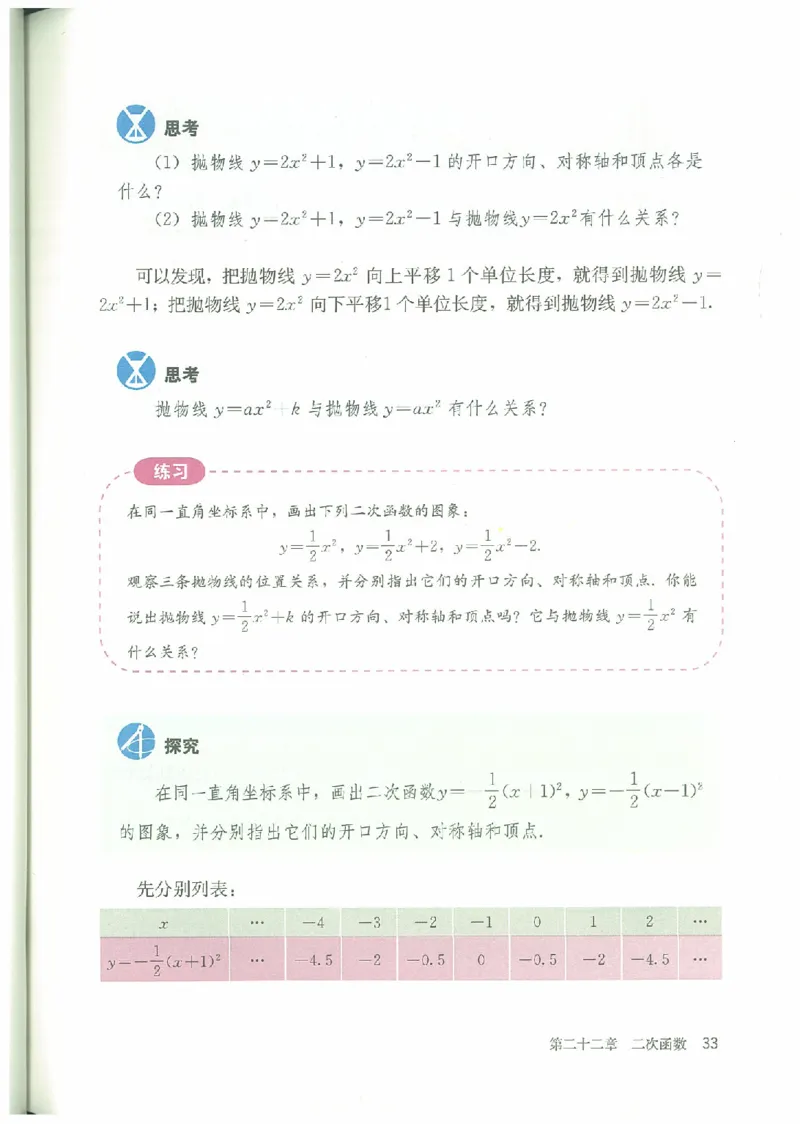 思考
(1) 抛物线 y=2x²+1，y=2x²−1 的开口方向、对称轴和顶点各是
什么？
(2) 抛物线 y=2x²+1，y=2x²−1 与抛物线y=2x²有什么关系？
可以发现，把抛物线 y=2x² 向上平移 1 个单位长度，就得到抛物线 y=
2x²+1；把抛物线 y=2x² 向下平移1 个单位长度，就得到抛物线 y=2x²−1.
思考
抛物线 y=ax²+k 与抛物线 y=ax² 有什么关系？
练习
在同一直角坐标系中，画出下列二次函数的图象：
y=1/2x²，y=1/2x²+2，y=1/2x²−2.
观察三条抛物线的位置关系，并分别指出它们的开口方向、对称轴和顶点. 你能
说出抛物线 y=1/2x²+k 的开口方向、对称轴和顶点吗？它与抛物线 y=1/2x² 有
什么关系？
探究
在同一直角坐标系中，画出二次函数y=−1/2(x+1)²，y=−1/2(x−1)²
的图象，并分别指出它们的开口方向、对称轴和顶点.
先分别列表：
x … −4 −3 −2 −1 0 1 2 …
y=−1/2(x+1)² … −4.5 −2 −0.5 0 −0.5 −2 −4.5 …
第二十二章 二次函数 33